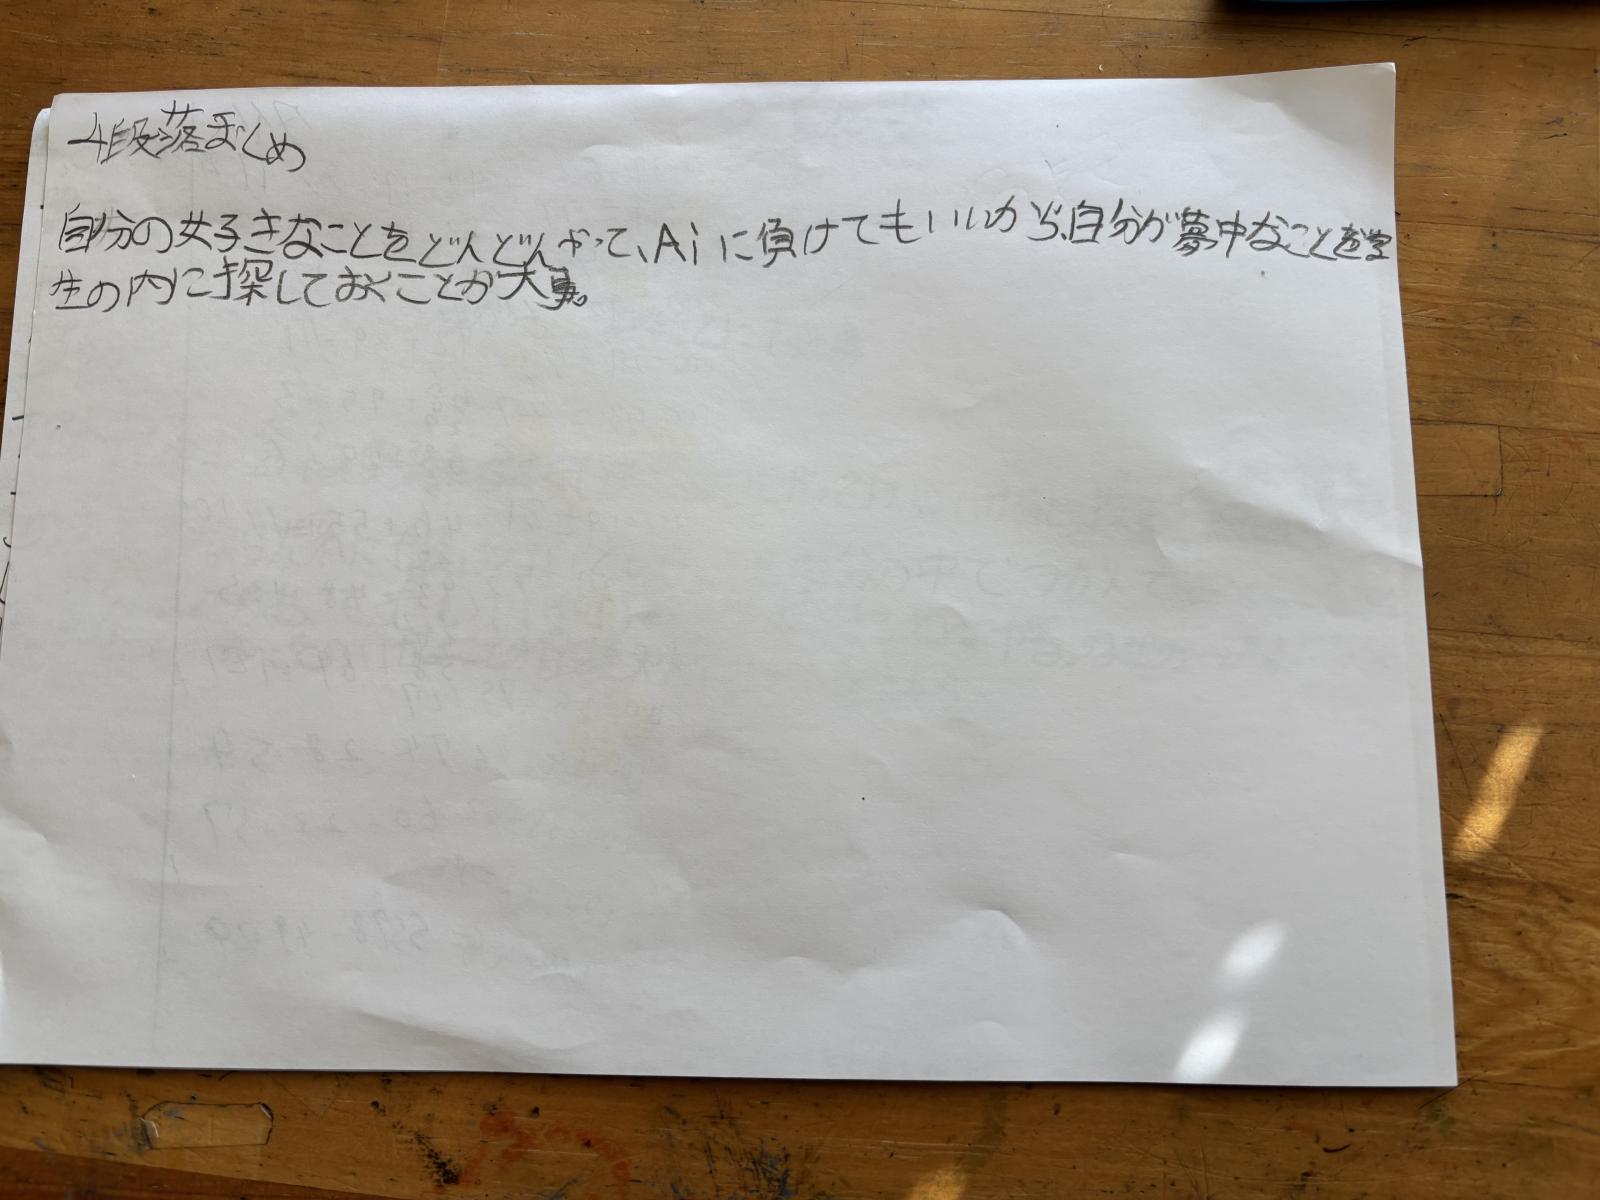 4段落まとめ
自分の好きなことをどんどんやって、Aiに負けてもいいから、自分が夢中なことを学
生の内に探しておくことが大事。